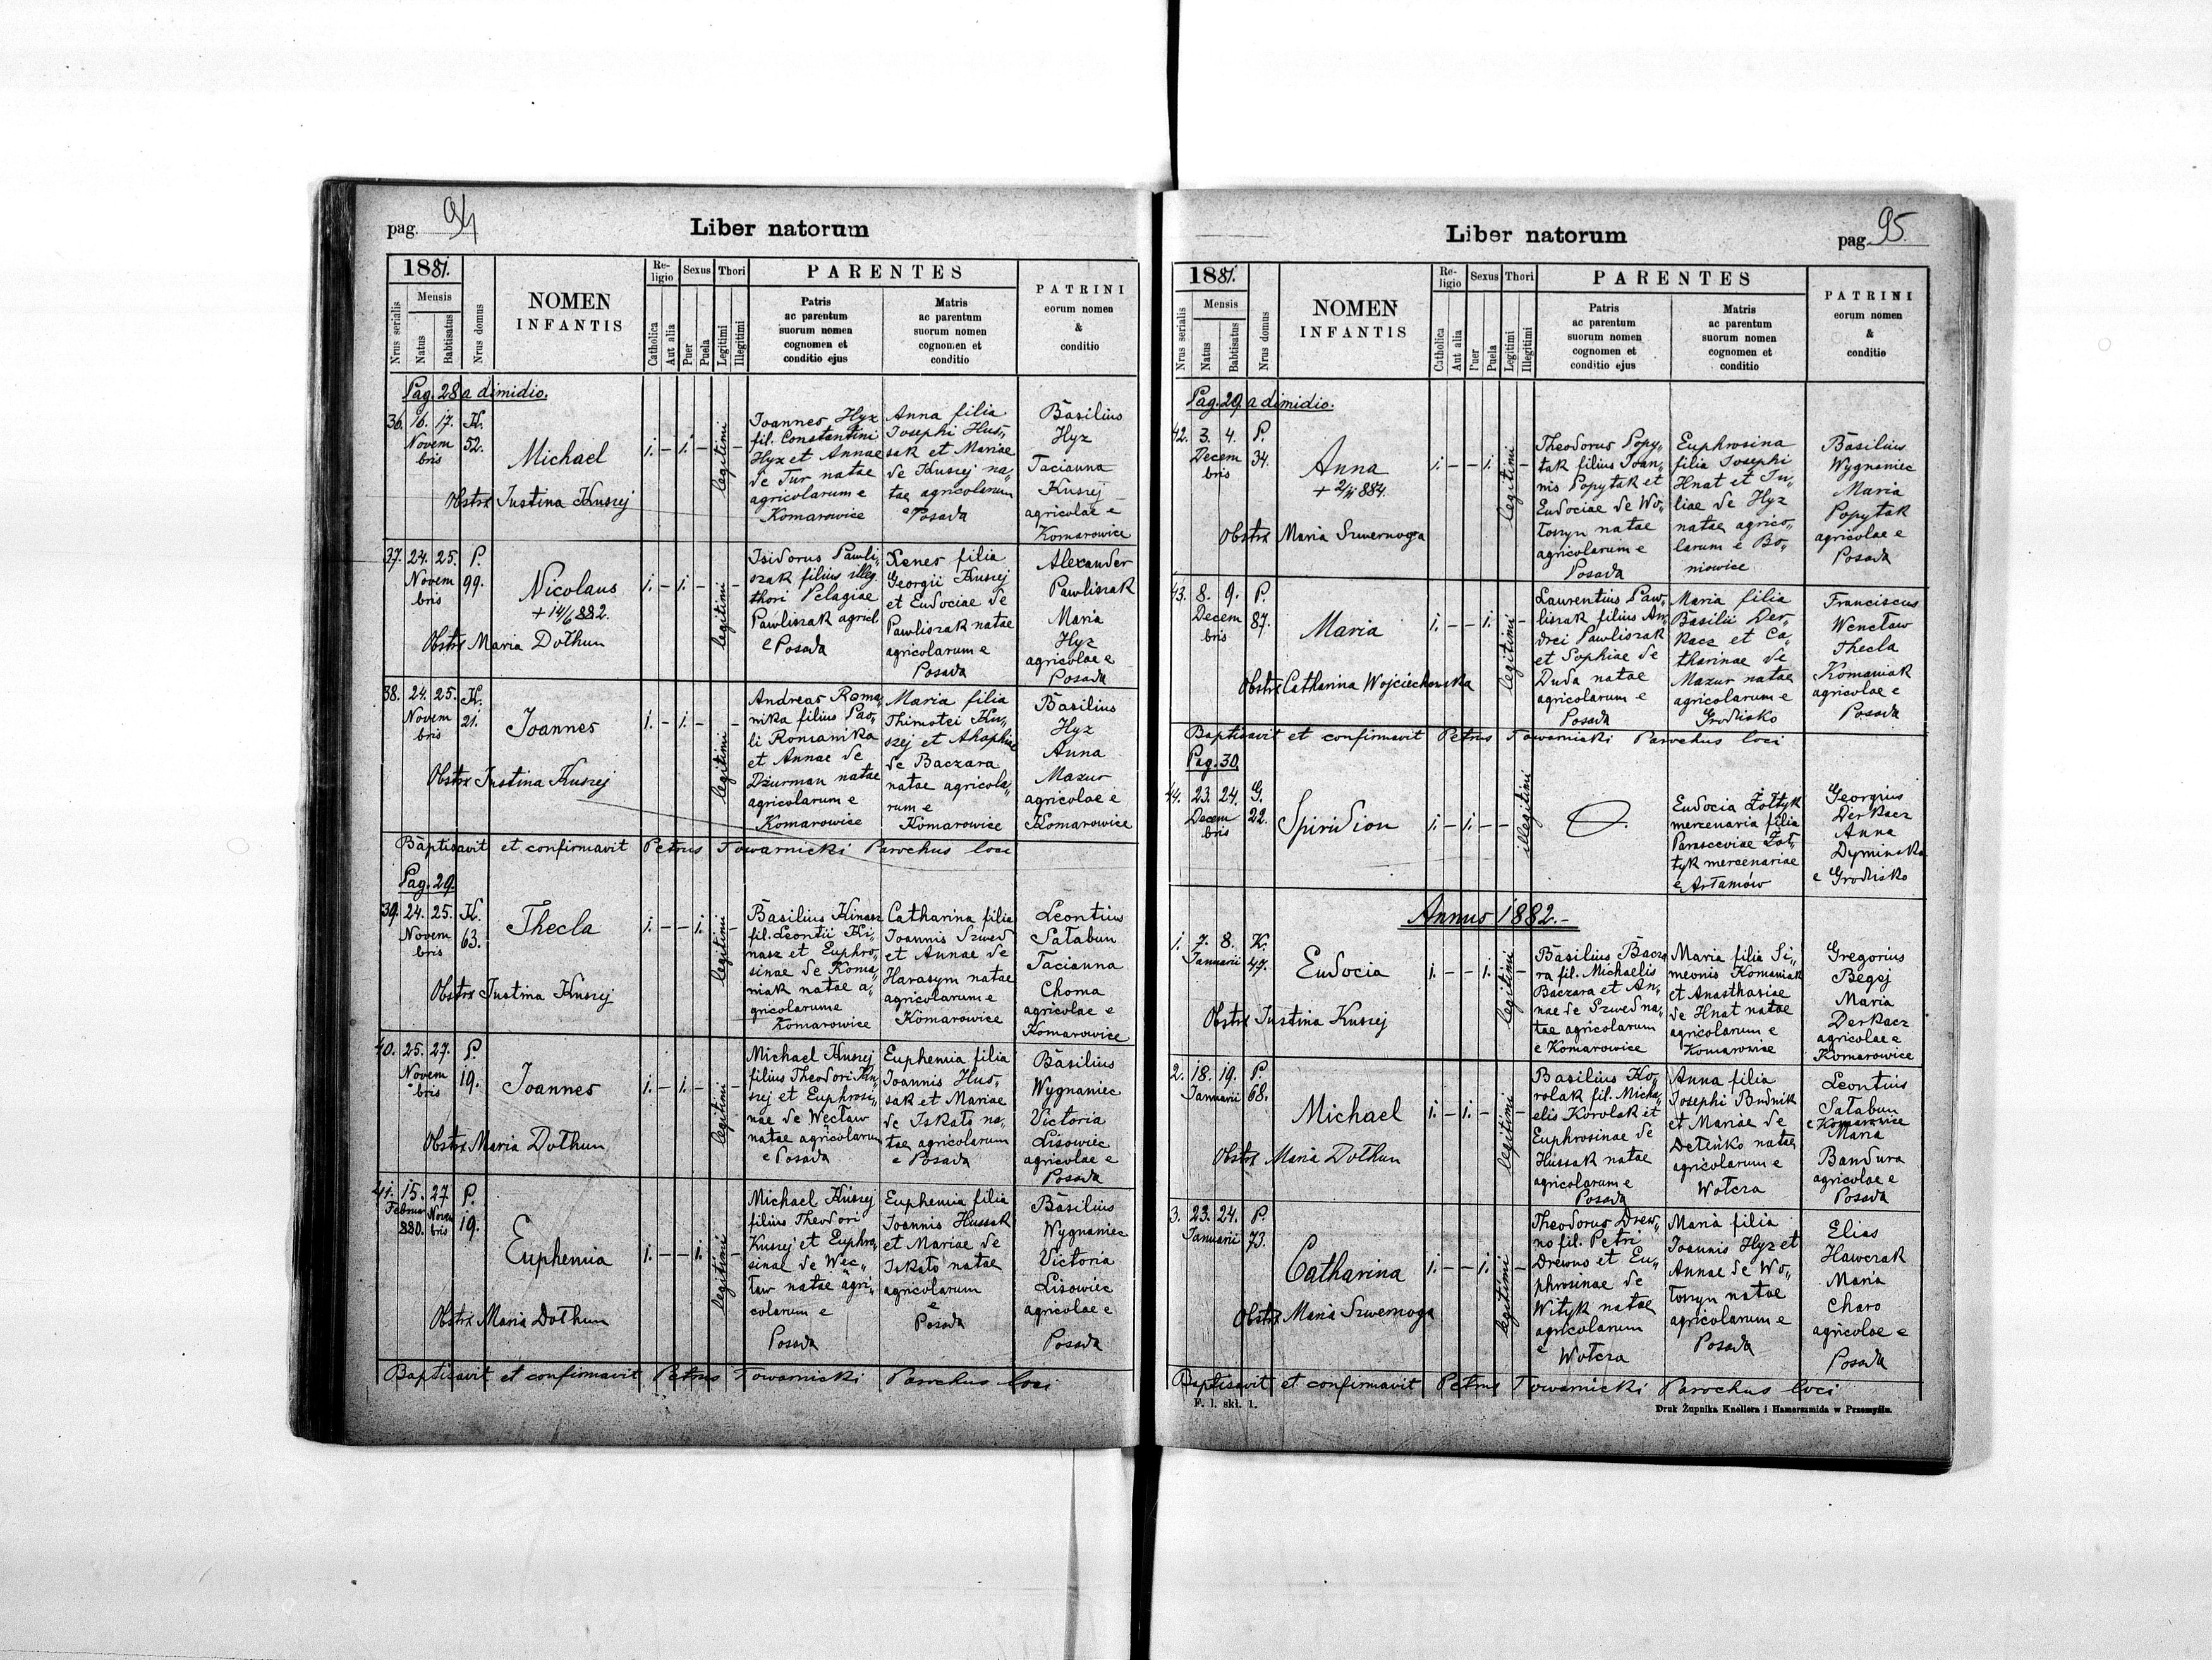 pag. 94
Liber natorum
1881.
Nrus serialis
Mensis
Natus
Babtisatus
Nrus domus
NOMEN
INFANTIS
Re-
ligio
Catholica
Aut alia
Sexus
Puer
Puela
Thori
Legitimi
Illegitimi
PARENTES
Patris
ac parentum
suorum nomen
cognomen et
conditio ejus
Matris
ac parentum
suorum nomen
cognomen et
conditio
PATRINI
eorum nomen
&
conditio
Pag. 28 a dimidio.
36. 16. 17. K.
Novem
bris
52.
Michael
1. – 1. –
legitimi
Obstx Justina Kuszej
Joannes Hyz
fil. Constantini
Hyz et Annae
de Tur natae
agricolarum e
Komarowice
Anna filia
Josephi Hus„
sak et Mariae
de Kuszej na„
tae agricolarum
e Posada
Basilius
Hyz
Tacianna
Kuszej
agricolae e
Komarowice
37. 24. 25. P.
Novem
bris
99.
Nicolaus
+ 14/6 882.
1. – 1. –
legitimi
Obstx Maria Dołhun
Isidorus Pawli„
szak filius illeg.
thori Pelagiae
Pawliszak agricl
e Posada
Xenes filia
Georgii Kuszej
et Eudociae de
Pawliszak natae
agricolarum e
Posada
Alexander
Pawliszak
Maria
Hyz
agricolae e
Posada
38. 24. 25. K.
Novem
bris
21.
Joannes
1. – 1. –
legitimi
Obstx Justina Kuszej
Andreas Roma„
nika filius Pau„
li Romanika
et Annae de
Dżurman natae
agricolarum e
Komarowice
Maria filia
Thimotei Ku„
szej et Ahaphiae
de Baczara
natae agricola„
rum e
Komarowice
Basilius
Hyz
Anna
Mazur
agricolae e
Komarowice
Baptisavit et confirmavit Petrus Towarnicki Parochus loci
Pag. 29.
39. 24. 25. K.
Novem
bris
63.
Thecla
1. – – 1.
legitimi
Obstx Justina Kuszej
Basilius Kinasz
fil. Leontii Ki„
nasz et Euphro„
sinae de Koma„
niak natae a„
gricolarum e
Komarowice
Catharina filia
Joannis Szwed
et Annae de
Harasym natae
agricolarum e
Komarowice
Leontius
Sałabun
Tacianna
Choma
agricolae e
Komarowice
40. 25. 27. P.
Novem
bris
19.
Joannes
1. – 1. –
legitimi
Obstx Maria Dołhun
Michael Kuszej
filius Theodori Ku„
szej et Euphrosi„
nae de Węcław
natae agricolarum
e Posada
Euphemia filia
Joannis Hus„
sak et Mariae
de Iskało na„
tae agricolarum
e Posada
Basilius
Wygnaniec
Victoria
Lisowiec
agricolae e
Posada
41. 15. 27 P.
Februar
880.
Novem
bris
19.
Euphemia
1. – – 1.
legitimi
Obstx Maria Dołhun
Michael Kuszej
filius Theodori
Kuszej et Euphro„
sinae de Węc„
ław natae agri„
colarum e
Posada
Euphemia filia
Joannis Hussak
et Mariae de
Iskało natae
agricolarum
e
Posada
Basilius
Wygnaniec
Victoria
Lisowiec
agricolae e
Posada
Baptisavit et confirmavit Petrus Towarnicki Parochus loci
Liber natorum
pag. 95.
1881.
Nrus serialis
Mensis
Natus
Babtisatus
Nrus domus
NOMEN
INFANTIS
Re-
ligio
Catholica
Aut alia
Sexus
Puer
Puela
Thori
Legitimi
Illegitimi
PARENTES
Patris
ac parentum
suorum nomen
cognomen et
conditio ejus
Matris
ac parentum
suorum nomen
cognomen et
conditio
PATRINI
eorum nomen
&
conditio
Pag. 29 a dimidio.
42. 3. 4. P.
Decem
bris
34.
Anna
1. – – 1.
legitimi
Obstx Maria Szwernoga
Theodorus Popy„
tak filius Joan„
nis Popytak et
Eudociae de Wo„
łoszyn natae
agricolarum e
Posada
Euphrosina
filia Josephi
Hnat et Ju„
liae de Hyz
natae agrico„
larum e Bo„
niowice
Basilius
Wygnaniec
Maria
Popytak
agricolae e
Posada
43. 8. 9. P.
Decem
bris
87.
Maria
1. – – 1.
legitimi
Obstx Catharina Wojciechowska
Laurentius Paw„
liszak filius An„
drei Pawliszak
et Sophiae de
Duda natae
agricolarum e
Posada
Maria filia
Basilii Der„
kacz et Ca„
tharinae de
Mazur natae
agricolarum e
Grodzisko
Franciscus
Wencław
Thecla
Komaniak
agricolae e
Posada
Baptisavit et confirmavit Petrus Towarnicki Parochus loci
Pag. 30.
44. 23. 24. G.
Decem
bris
22.
Spiridion
1. – 1. –
illegitimi
Eudocia Żołtyk
mercenaria filia
Parasceviae Żoł„
tyk mercenariae
e Arłamów
Georgius
Derkacz
Anna
Dyminska
e Grodzisko
Annus 1882.–
1. 7. 8. K.
Januarii
47.
Eudocia
1. – – 1.
legitimi
Obstx Justina Kuszej
Basilius Bacza
ra fil. Michaelis
Baczara et An„
nae de Szwed na„
tae agricolarum
e Komarowice
Maria filia Si„
meonis Komaniak
et Anasthasiae
de Hnat natae
agricolarum e
Komarowice
Gregorius
Begej
Maria
Derkacz
agricolae e
Komarowice
2. 18. 19. P.
Januarii
68.
Michael
1. – 1. –
legitimi
Obstx Maria Dołhun
Basilius Ko„
rolak fil. Micha„
elis Korolak et
Euphrosinae de
Hussak natae
agricolarum e
Posada
Anna filia
Josephi Budnik
et Mariae de
Deteńko natae
agricolarum e
Wołcza
Leontius
Sałabun
e Komarowice
Maria
Bandura
agricolae e
Posada
3. 23. 24. P.
Januarii
73.
Catharina
1. – – 1.
legitimi
Obstx Maria Szwernoga
Theodorus Drew„
no fil. Petri
Drewno et Eu„
phrosinae de
Wityk natae
agricolarum
e
Wołcza
Maria filia
Joannis Hyz et
Annae de Wo„
łoszyn natae
agricolarum e
Posada
Elias
Hawczak
Maria
Charo
agricolae e
Posada
Baptisavit et confirmavit Petrus Towarnicki Parochus loci
F. l. skł. 1.
Druk Żupnika Knollera i Hamerzmida w Przemyślu.